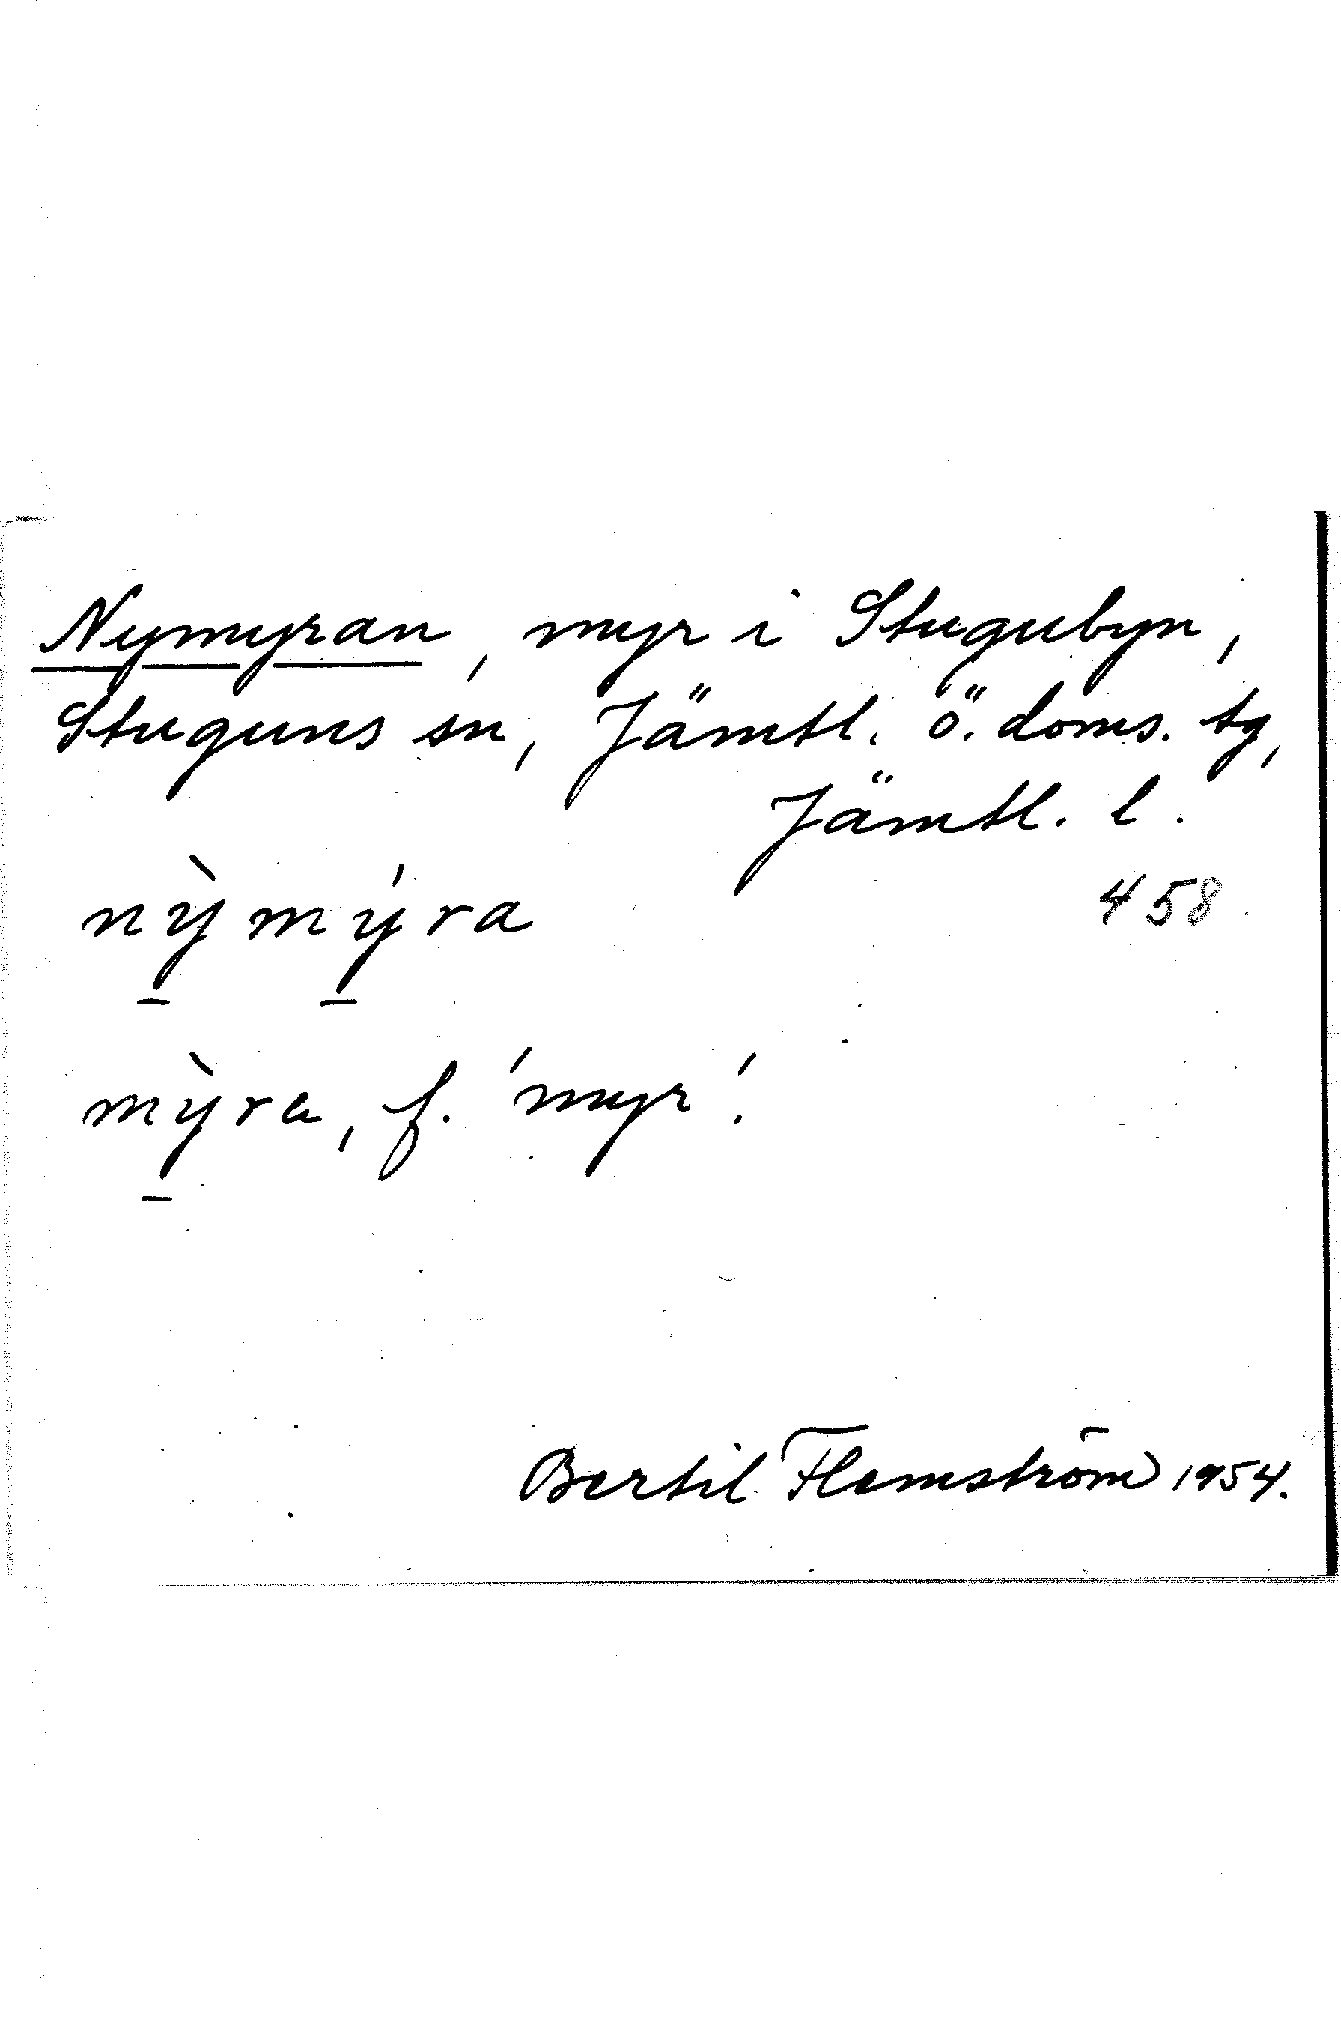 Nymyran, myr i Stugubyn,
Stuguns sn, Jämtl. ö. doms. tg,
Jämtl. l.
nỳ̱mý̱ra
458
mỳ̱ra, f. 'myr'.
Bertil Flemström 1954.